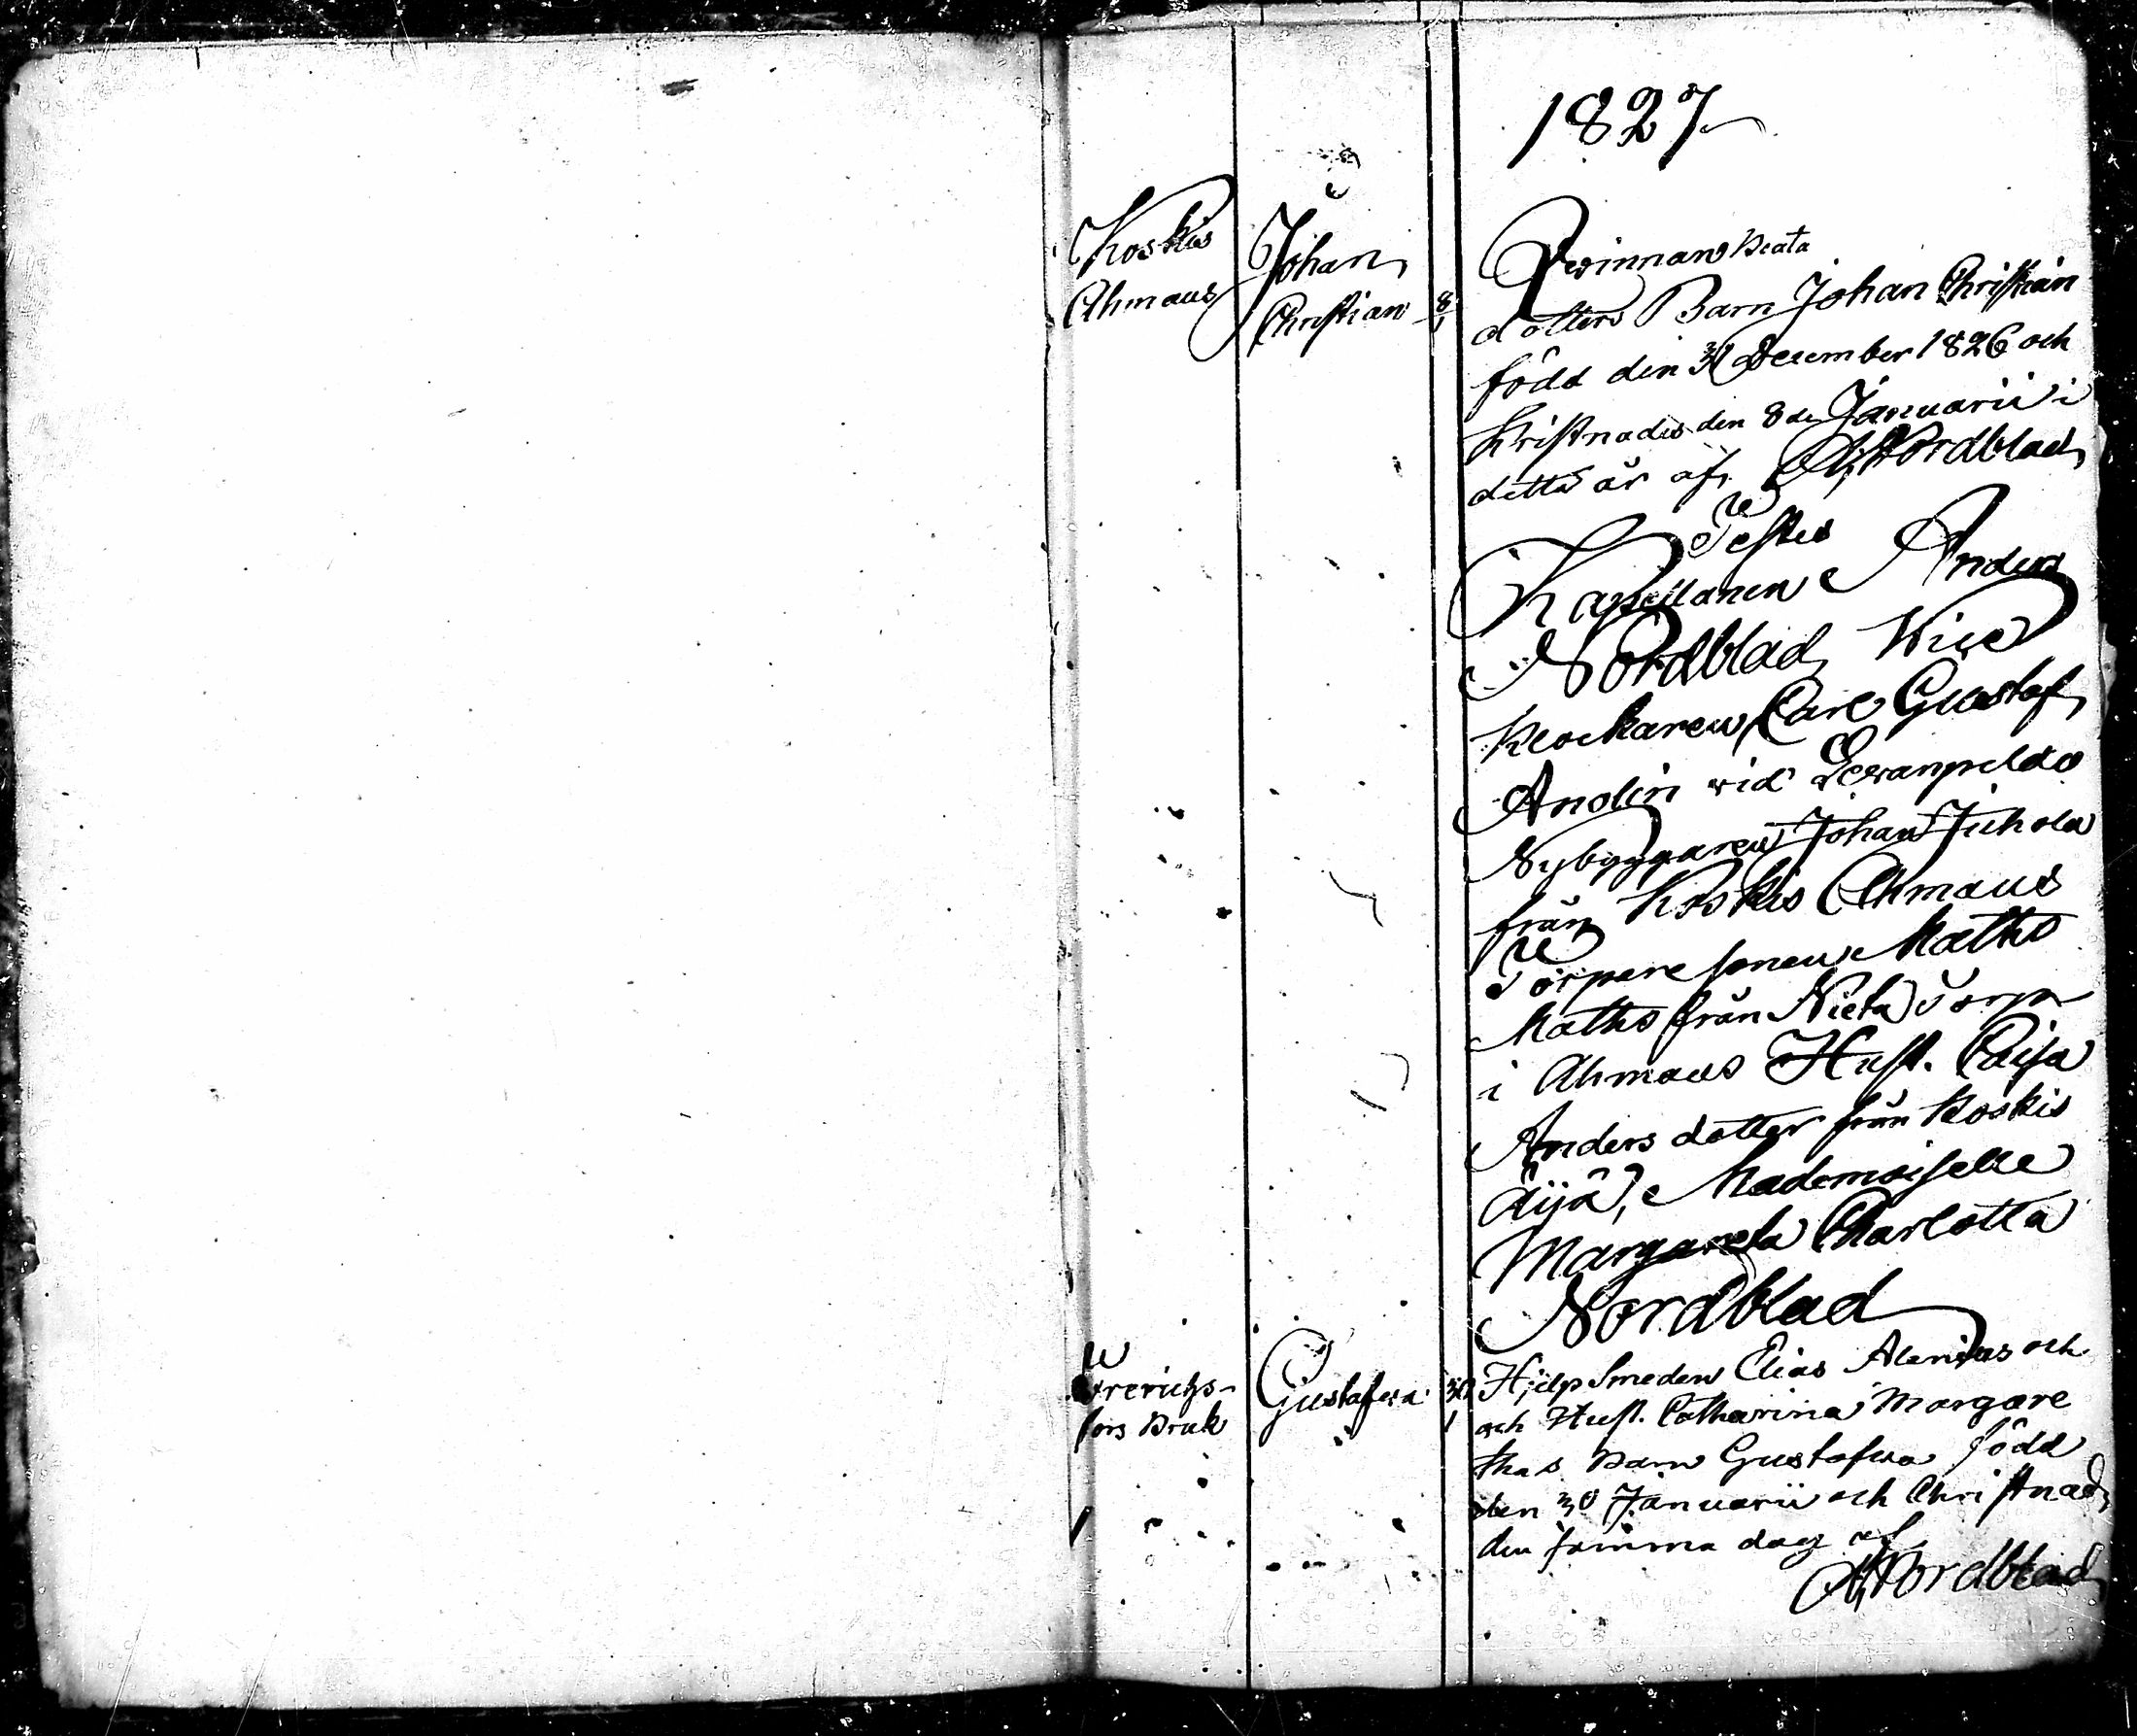 1827
Koskis
Ahmaus
Johan
Christian
8/1
Qwinnans Beata
dotters Barn Johan Christian
född den 31 December 1826 och
kristnades den 8de Januarii i
detta år af A. Nordblad
Testes
Kapellanen Anders
Nordblad, Wice
Klockaren Carl Gustaf
Andlin wid
Nybyggaren Johan Juhola
från Koskis Ahmaus
Torpare sonen Maths
Maths från Nieta Torp
i Ahmaus Hust. Caisa
Anders dotter från Koskis
Äijä, Mademoiselle
Margareta Charlotta
Nordblad
fors Bruk
Gustafwa
30/1
Hjelp Smeden Elias Alenius och
och Hust. Catharina Margare
thas Barn Gustafwa född
den 30 Januarii och Christnad
den samma dag af
A. Nordblad